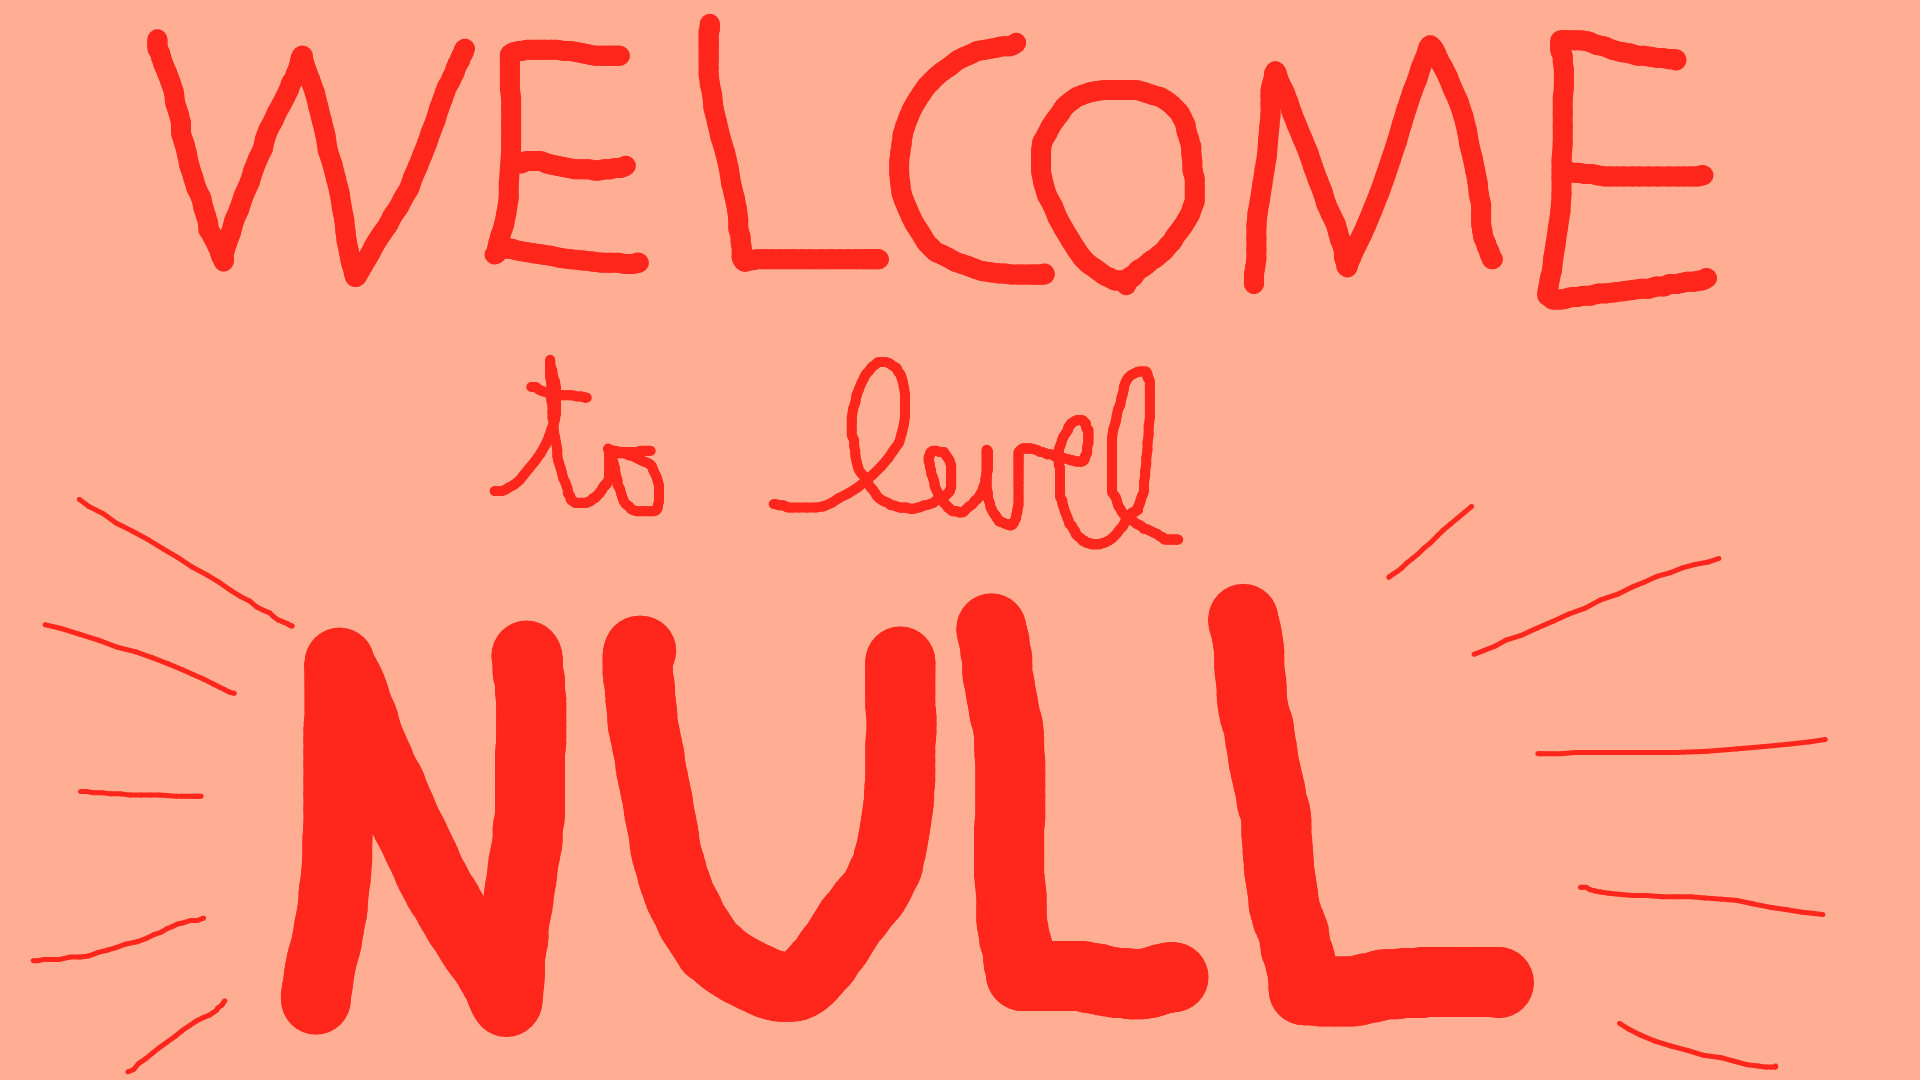 WELCOME
to level
NULL